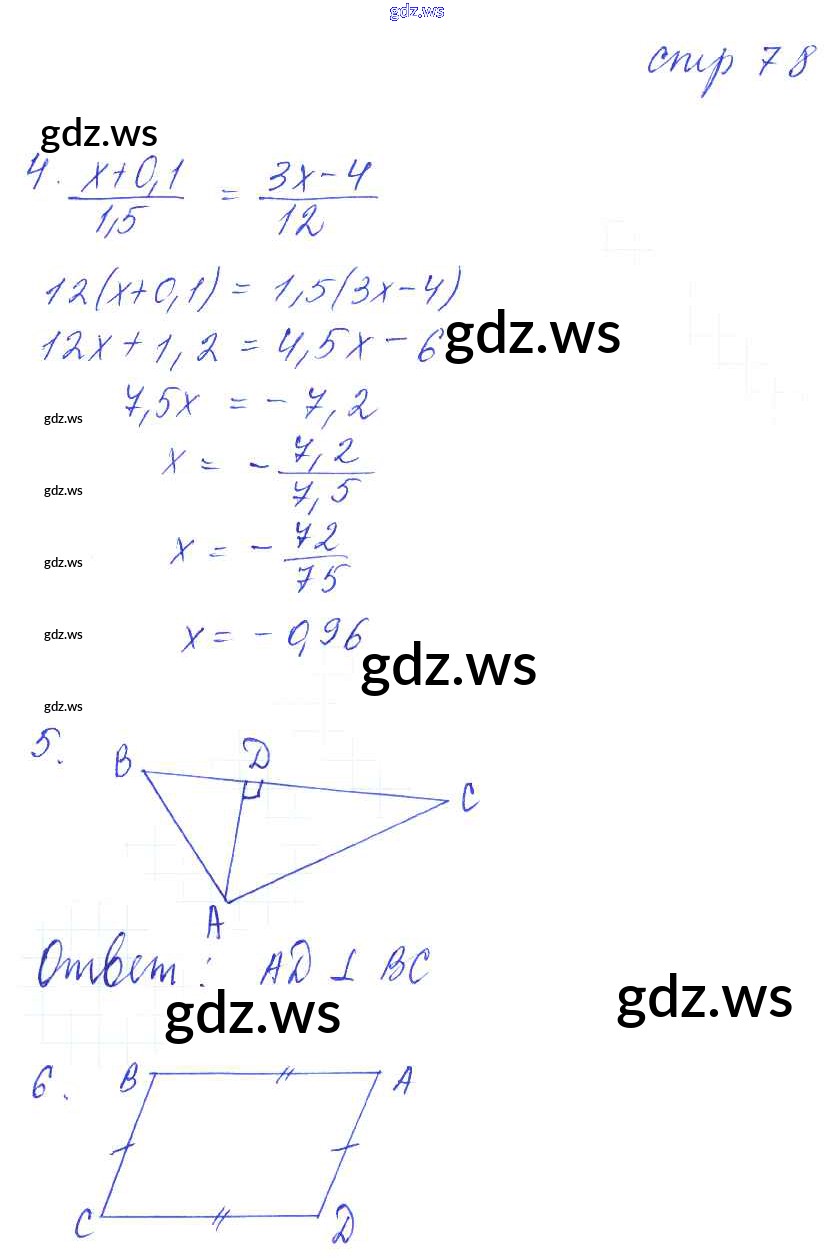 gdz.ws
стр 78
gdz.ws
4. x+0,1/1,5 = 3x-4/12
12(x+0,1) = 1,5(3x-4)
12x+1,2 = 4,5x-6
gdz.ws
7,5x = -7,2
gdz.ws
x = - 7,2/7,5
gdz.ws
x = - 72/75
gdz.ws
x = -0,96
gdz.ws
gdz.ws
gdz.ws
5.
B D C
A
Ответ: AD ⊥ BC
gdz.ws
gdz.ws
6. B A
C D